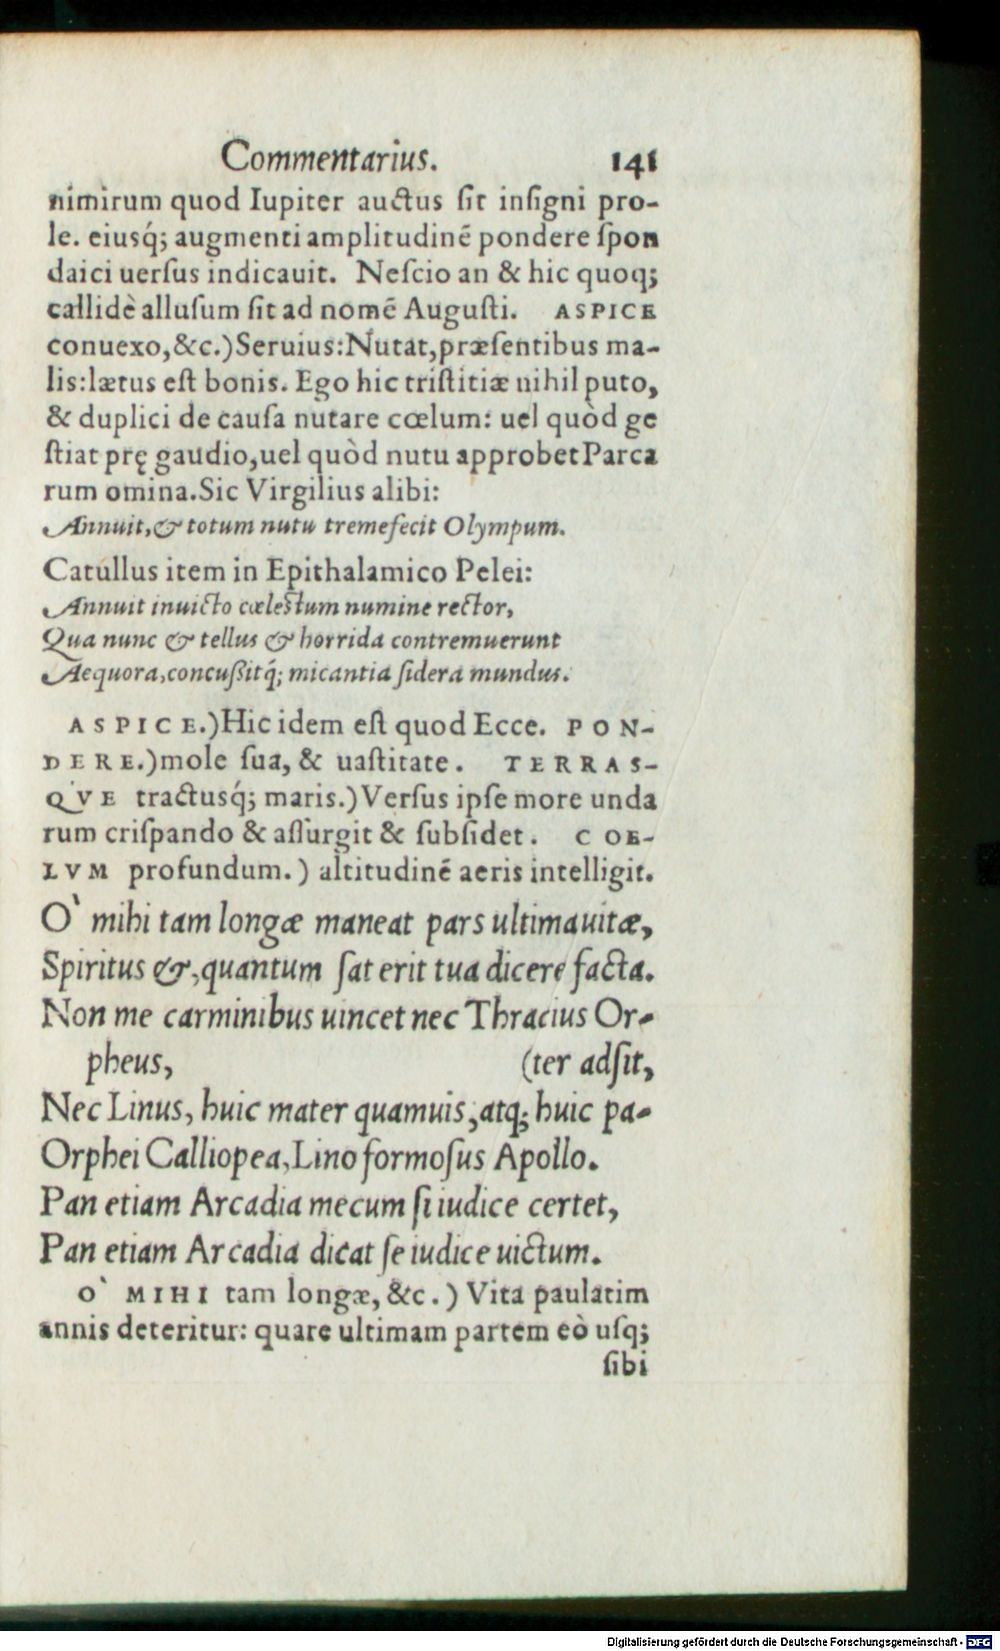 Commentarius. 141
nimirum quod Iupiter auctus ſit inſigni pro-
le. eiusq́; augmenti amplitudinẽ pondere ſpon
daici uerſus indicauit. Neſcio an & hic quoq;
callidè alluſum ſit ad nomẽ Auguſti. ASPICE
conuexo,&c.)Seruius:Nutat,præſentibus ma-
lis:lætus eſt bonis. Ego hic triſtitiæ nihil puto,
& duplici de cauſa nutare cœlum: uel quòd ge
ſtiat prę gaudio,uel quòd nutu approbet Parca
rum omina.Sic Virgilius alibi:
Annuit,& totum nutu tremefecit Olympum.
Catullus item in Epithalamico Pelei:
Annuit inuicto cœleſtum numine rector,
Qua nunc & tellus & horrida contremuerunt
Aequora,concußitq́; micantia ſidera mundus.
ASPICE.)Hic idem eſt quod Ecce. PON-
DERE.)mole ſua, & uaſtitate. TERRAS-
QVE tractusq́; maris.)Verſus ipſe more unda
rum criſpando & aſſurgit & ſubſidet. COE-
LVM profundum.) altitudinẽ aeris intelligit.
O` mihi tam longæ maneat pars ultima uitæ,
Spiritus &,quantum ſat erit tua dicere facta.
Non me carminibus uincet nec Thracius Or-
pheus, (ter adſit,
Nec Linus, huic mater quamuis,atq; huic pa-
Orphei Calliopea,Lino formoſus Apollo.
Pan etiam Arcadia mecum ſi iudice certet,
Pan etiam Arcadia dicat ſe iudice uictum.
O` MIHI tam longæ, &c.) Vita paulatim
annis deteritur: quare ultimam partem eò uſq;
ſibi
Digitalisierung gefördert durch die Deutsche Forschungsgemeinschaft - DFG